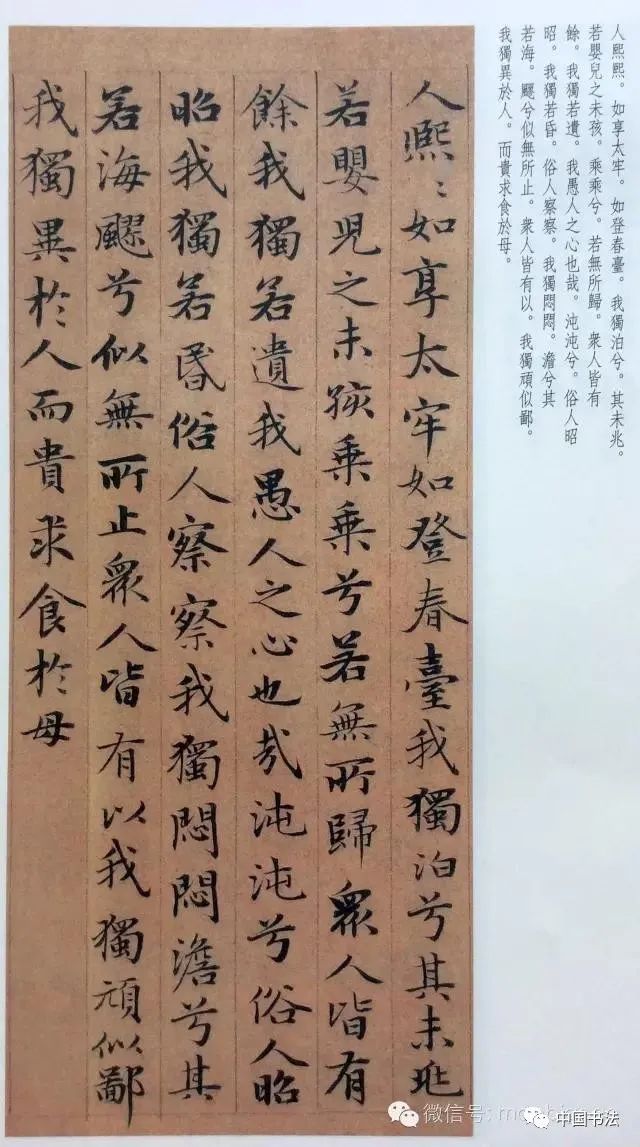 人熙熙。如享太牢。如登春臺。我獨泊兮。其未兆。
若嬰兒之未孩。乘乘兮。若無所歸。衆人皆有
餘。我獨若遺。我愚人之心也哉。沌沌兮。俗人昭
昭。我獨若昏。俗人察察。我獨悶悶。澹兮其
若海。飂兮似無所止。衆人皆有以。我獨頑似鄙。
我獨異於人。而貴求食於母。
人熙〻如享太牢如登春臺我獨泊兮其未兆
若嬰兒之未孩乘乘兮若無所歸眾人皆有
餘我獨若遺我愚人之心也哉沌沌兮俗人昭
昭我獨若昏俗人察察我獨悶悶澹兮其
若海飂兮似無所止眾人皆有以我獨頑似鄙
我獨異於人而貴求食於母
微信号:
中国书法